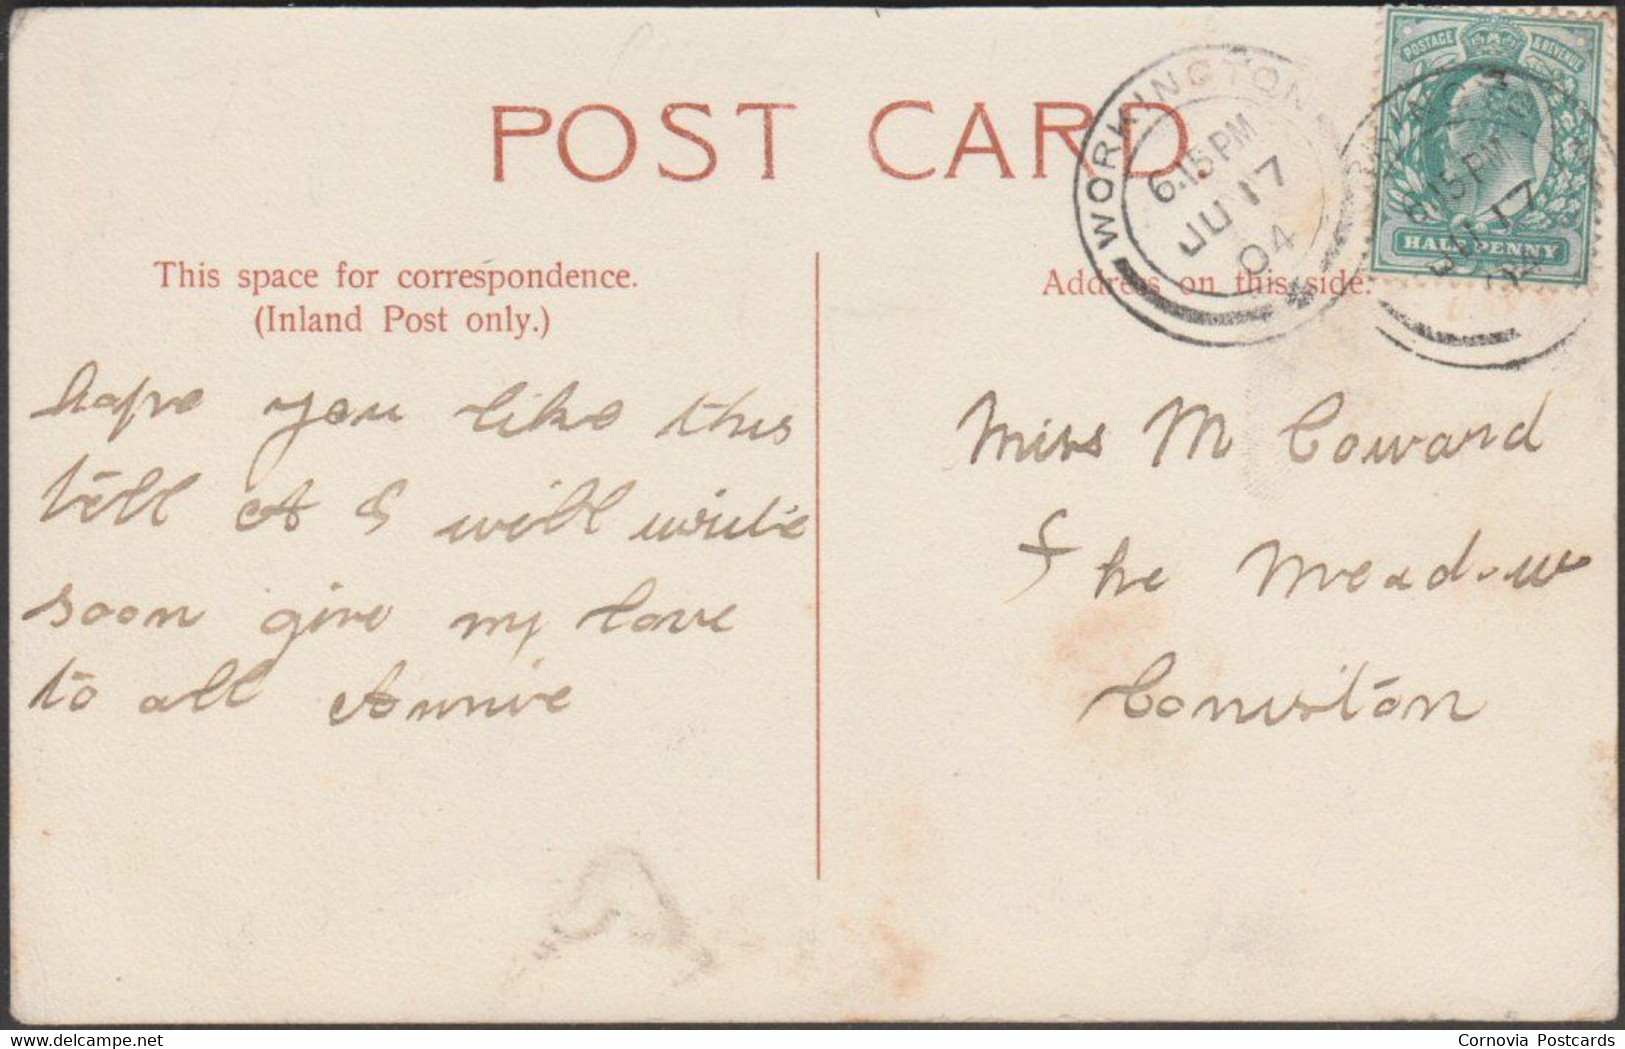 POST CARD
WORKINGTON
6.15PM
JU 17
04
POSTAGE & REVENUE
6.15PM
JU 17
04
HALFPENNY
This space for correspondence.
(Inland Post only.)
Address on this side.
hope you like this
tell A I will write
soon give my love
to all Annie
Miss M Coward
The Meadow
Coniston
Cornovia Postcards